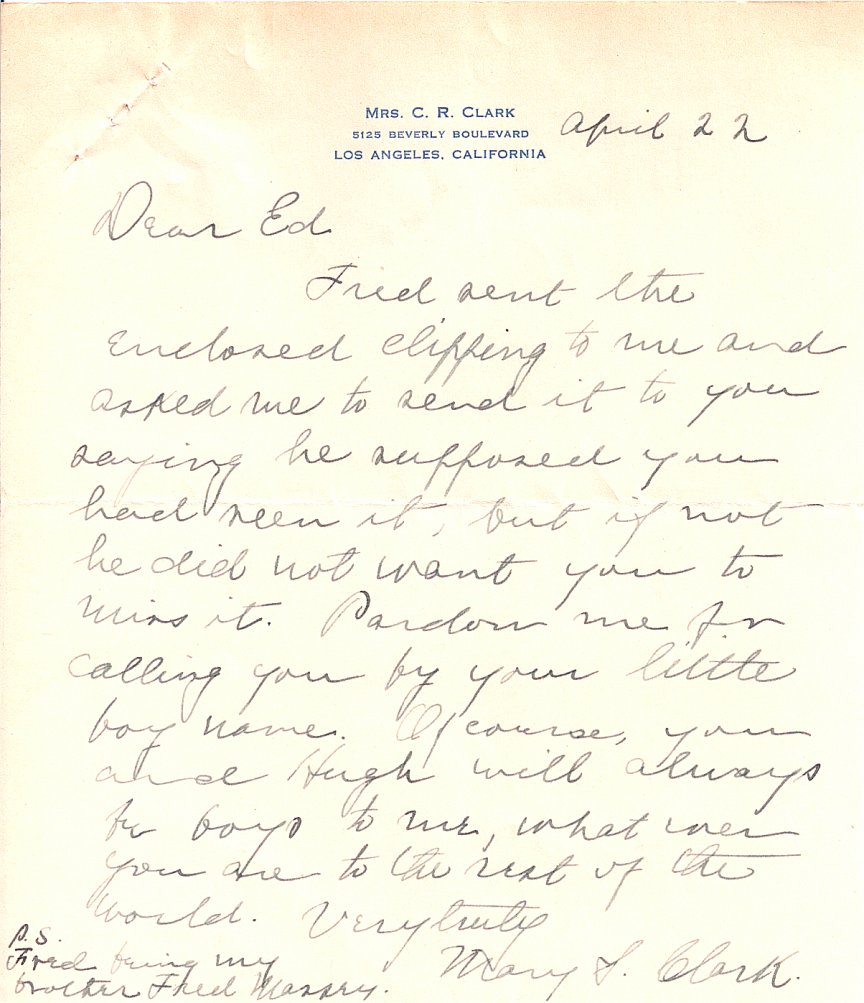 Mrs. C. R. Clark
5125 Beverly Boulevard
Los Angeles, California
April 22
Dear Ed
Fred sent the
enclosed clipping to me and
asked me to send it to you
saying he supposed you
had seen it, but if not
he did not want you to
miss it. Pardon me for
calling you by your little
boy name. Of course, you
and Hugh will always
be boys to me, what ever
you are to the rest of the
world. Very truly
Mary S. Clark.
P.S.
Fred being my
brother Fred Massey.